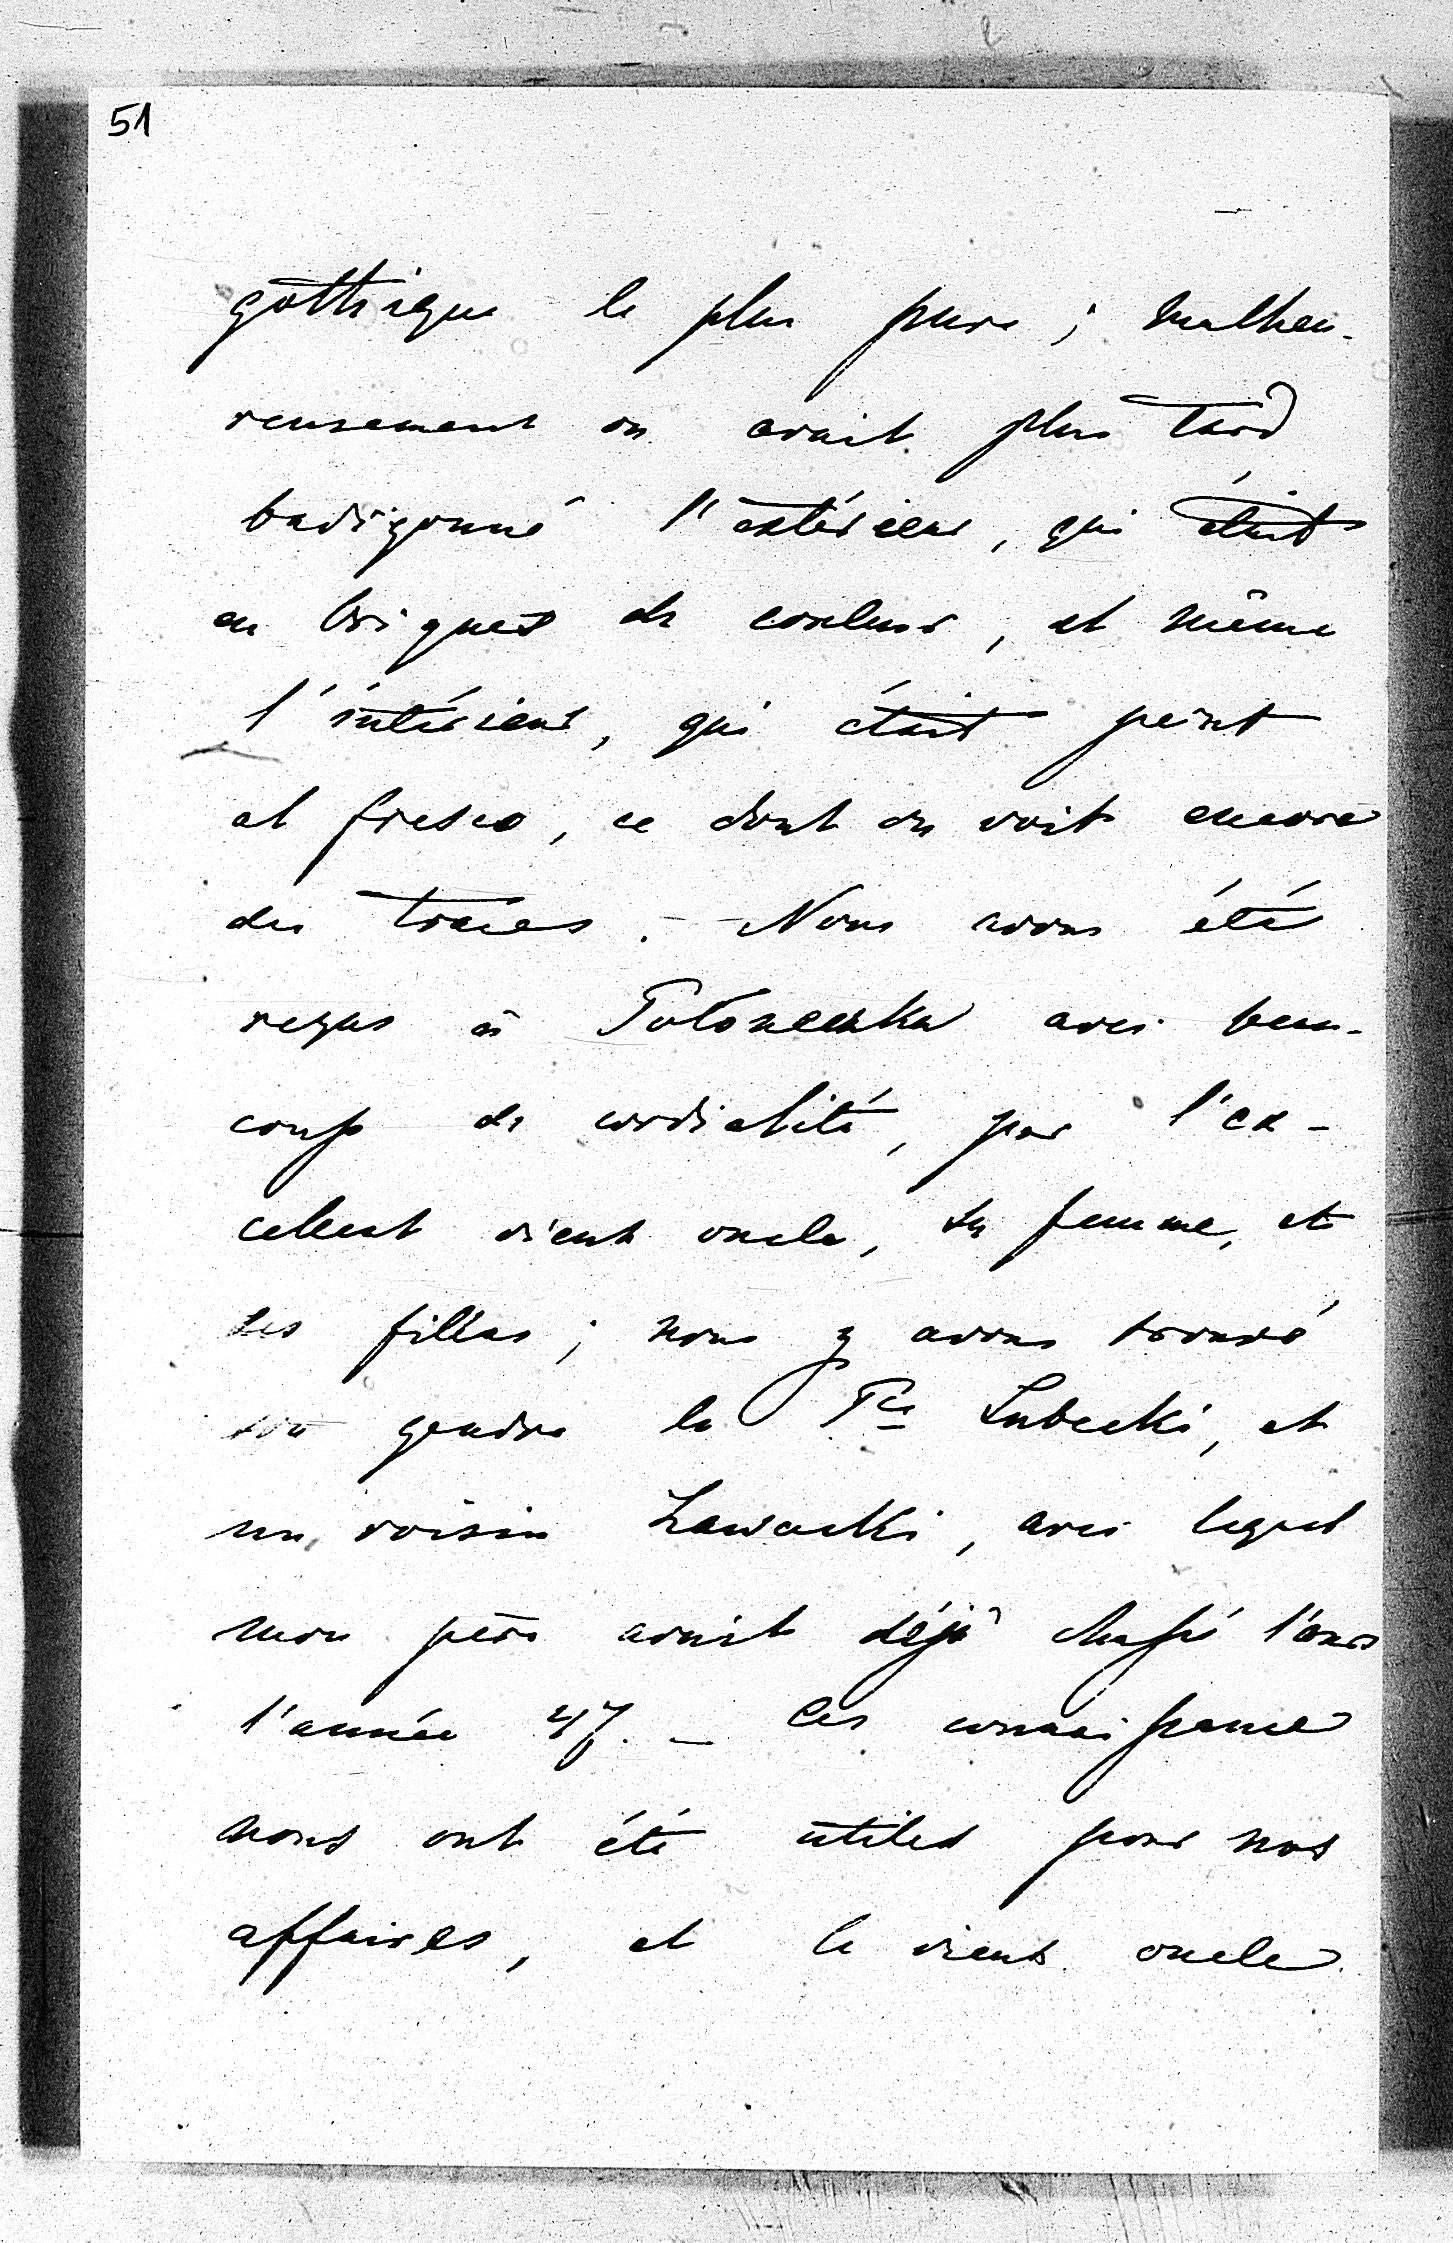 51
gothique le plus pure ; malheu-
reusement on avait plus tard
badigonné l'extérieur, qui était
en briques de couleur, et même
l'intérieur, qui était peint
al fresco, ce dont on voit encore
des traces. - Nous avons été
reçus à Połoneczka avec beau-
coup de cordialité, par l'ex-
cellent vieux oncle, sa femme, et
ses filles ; nous y avons trouvé
son gendre le Pce Lubecki, et
un voisin Zawadzki, avec lequel
mon père avait déjà chassé l'ours
l'année 47. - Ces connaissances
nous ont été utiles pour nos
affaires, et le vieux oncle